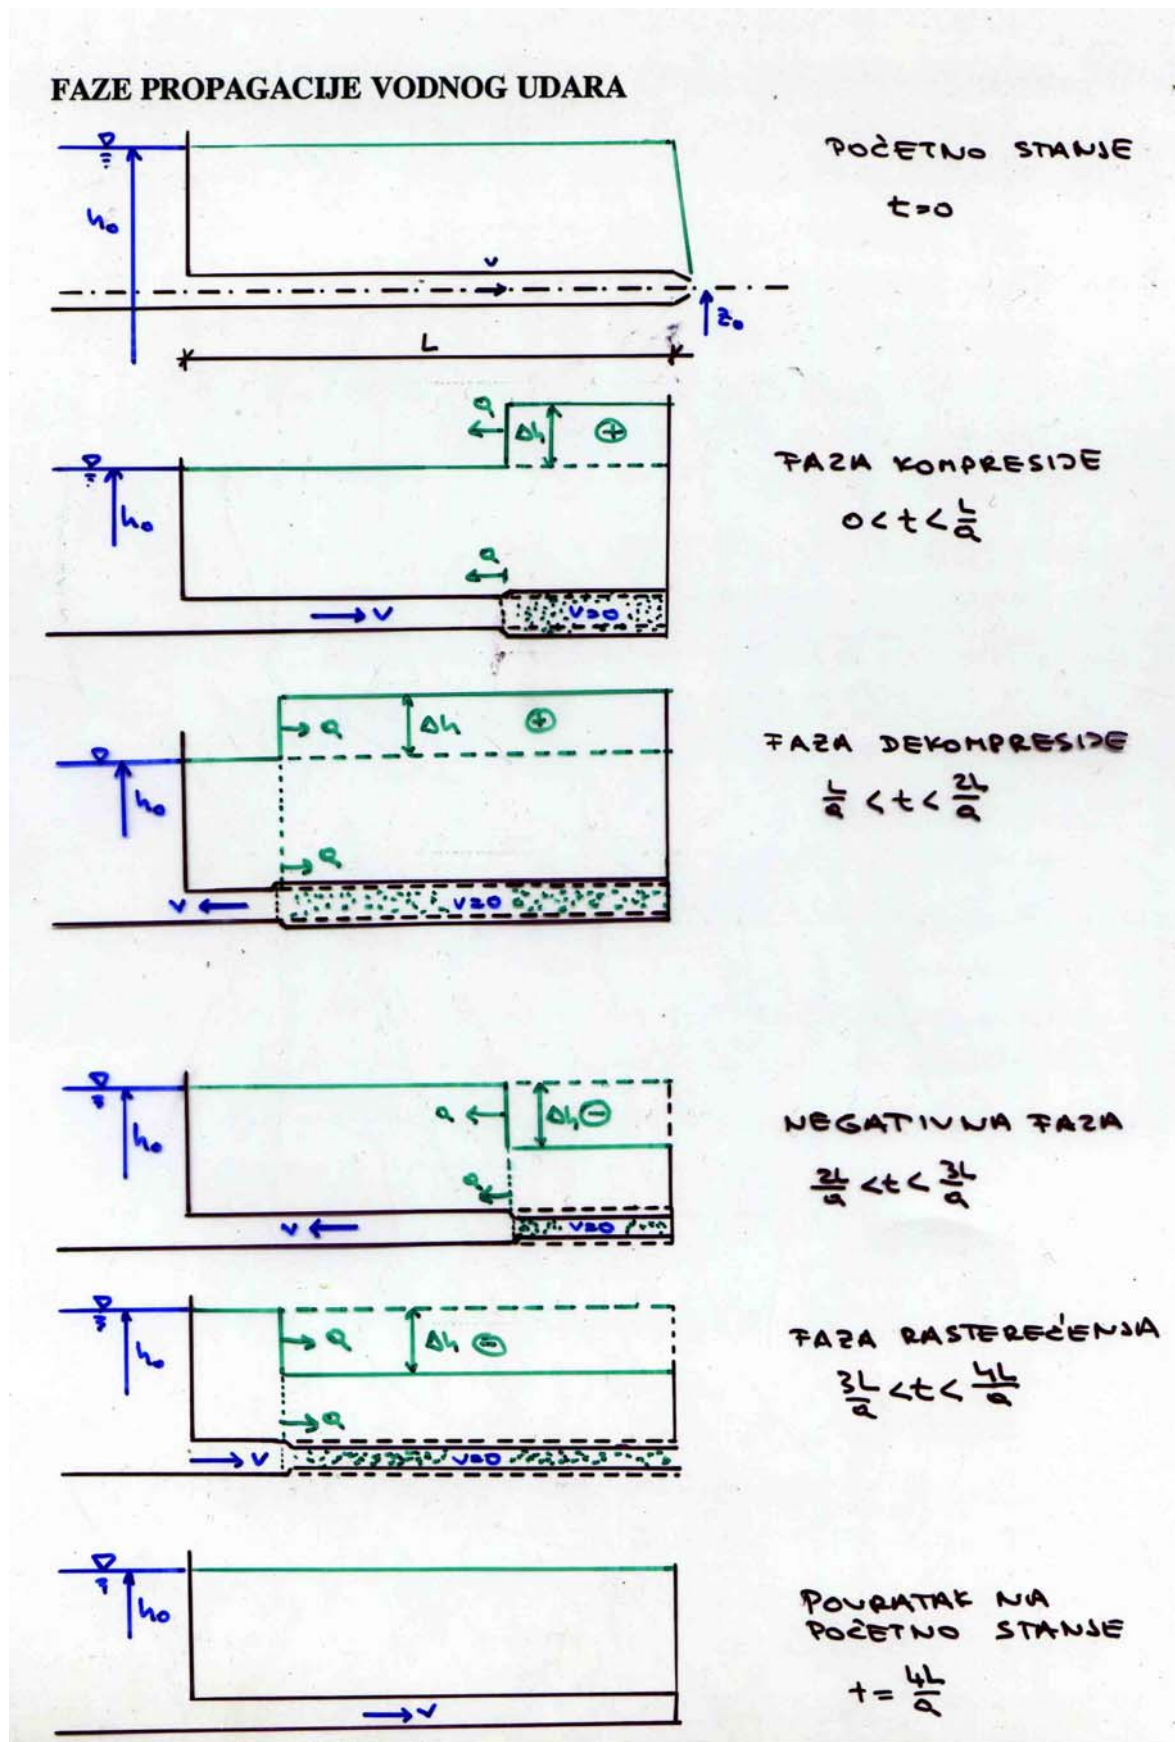 FAZE PROPAGACIJE VODNOG UDARA
POČETNO STANJE
t=0
h₀
v
z₀
L
a
Δh +
FAZA KOMPRESIJE
0<t<L/a
h₀
a
v
v=0
a
Δh +
FAZA DEKOMPRESIJE
L/a < t < 2L/a
h₀
a
v
v=0
a
Δh −
NEGATIVNA FAZA
2L/a < t < 3L/a
h₀
a
v
v=0
a
Δh −
FAZA RASTEREĆENJA
3L/a < t < 4L/a
h₀
a
v
v=0
h₀
POVRATAK NA
POČETNO STANJE
t = 4L/a
v